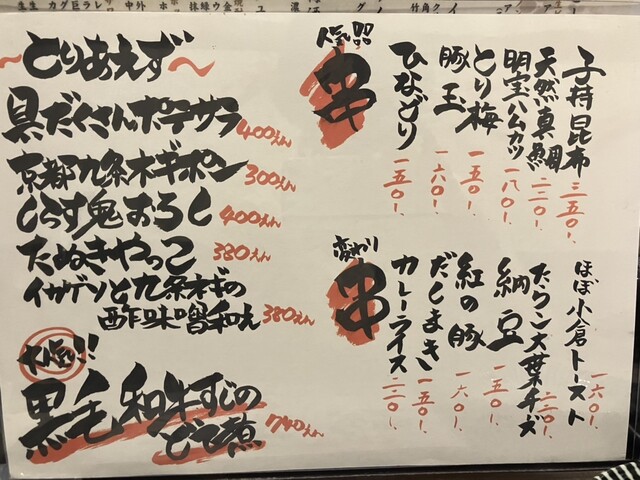 〜とりあえず〜
具だくさんポテサラ 400えん
京都九条ネギポン 300えん
しらす鬼おろし 400えん
たぬきやっこ 380えん
イカゲソと九条ネギの
酢味噌和え 380えん
人気!!
黒毛和牛すじの
どて煮 740えん
人気の品
串
子持昆布 三五〇!
天然真鯛 二二〇!
明宝ハムカツ 一八〇!
とり梅 一五〇!
豚玉 一六〇!
ひなどり 一五〇!
変わり
串
ほぼ小倉トースト 一六〇!
たらこ大葉チーズ 二二〇!
納豆 一五〇!
紅の豚 一六〇!
だしまき 一五〇!
カレーライス 二二〇!